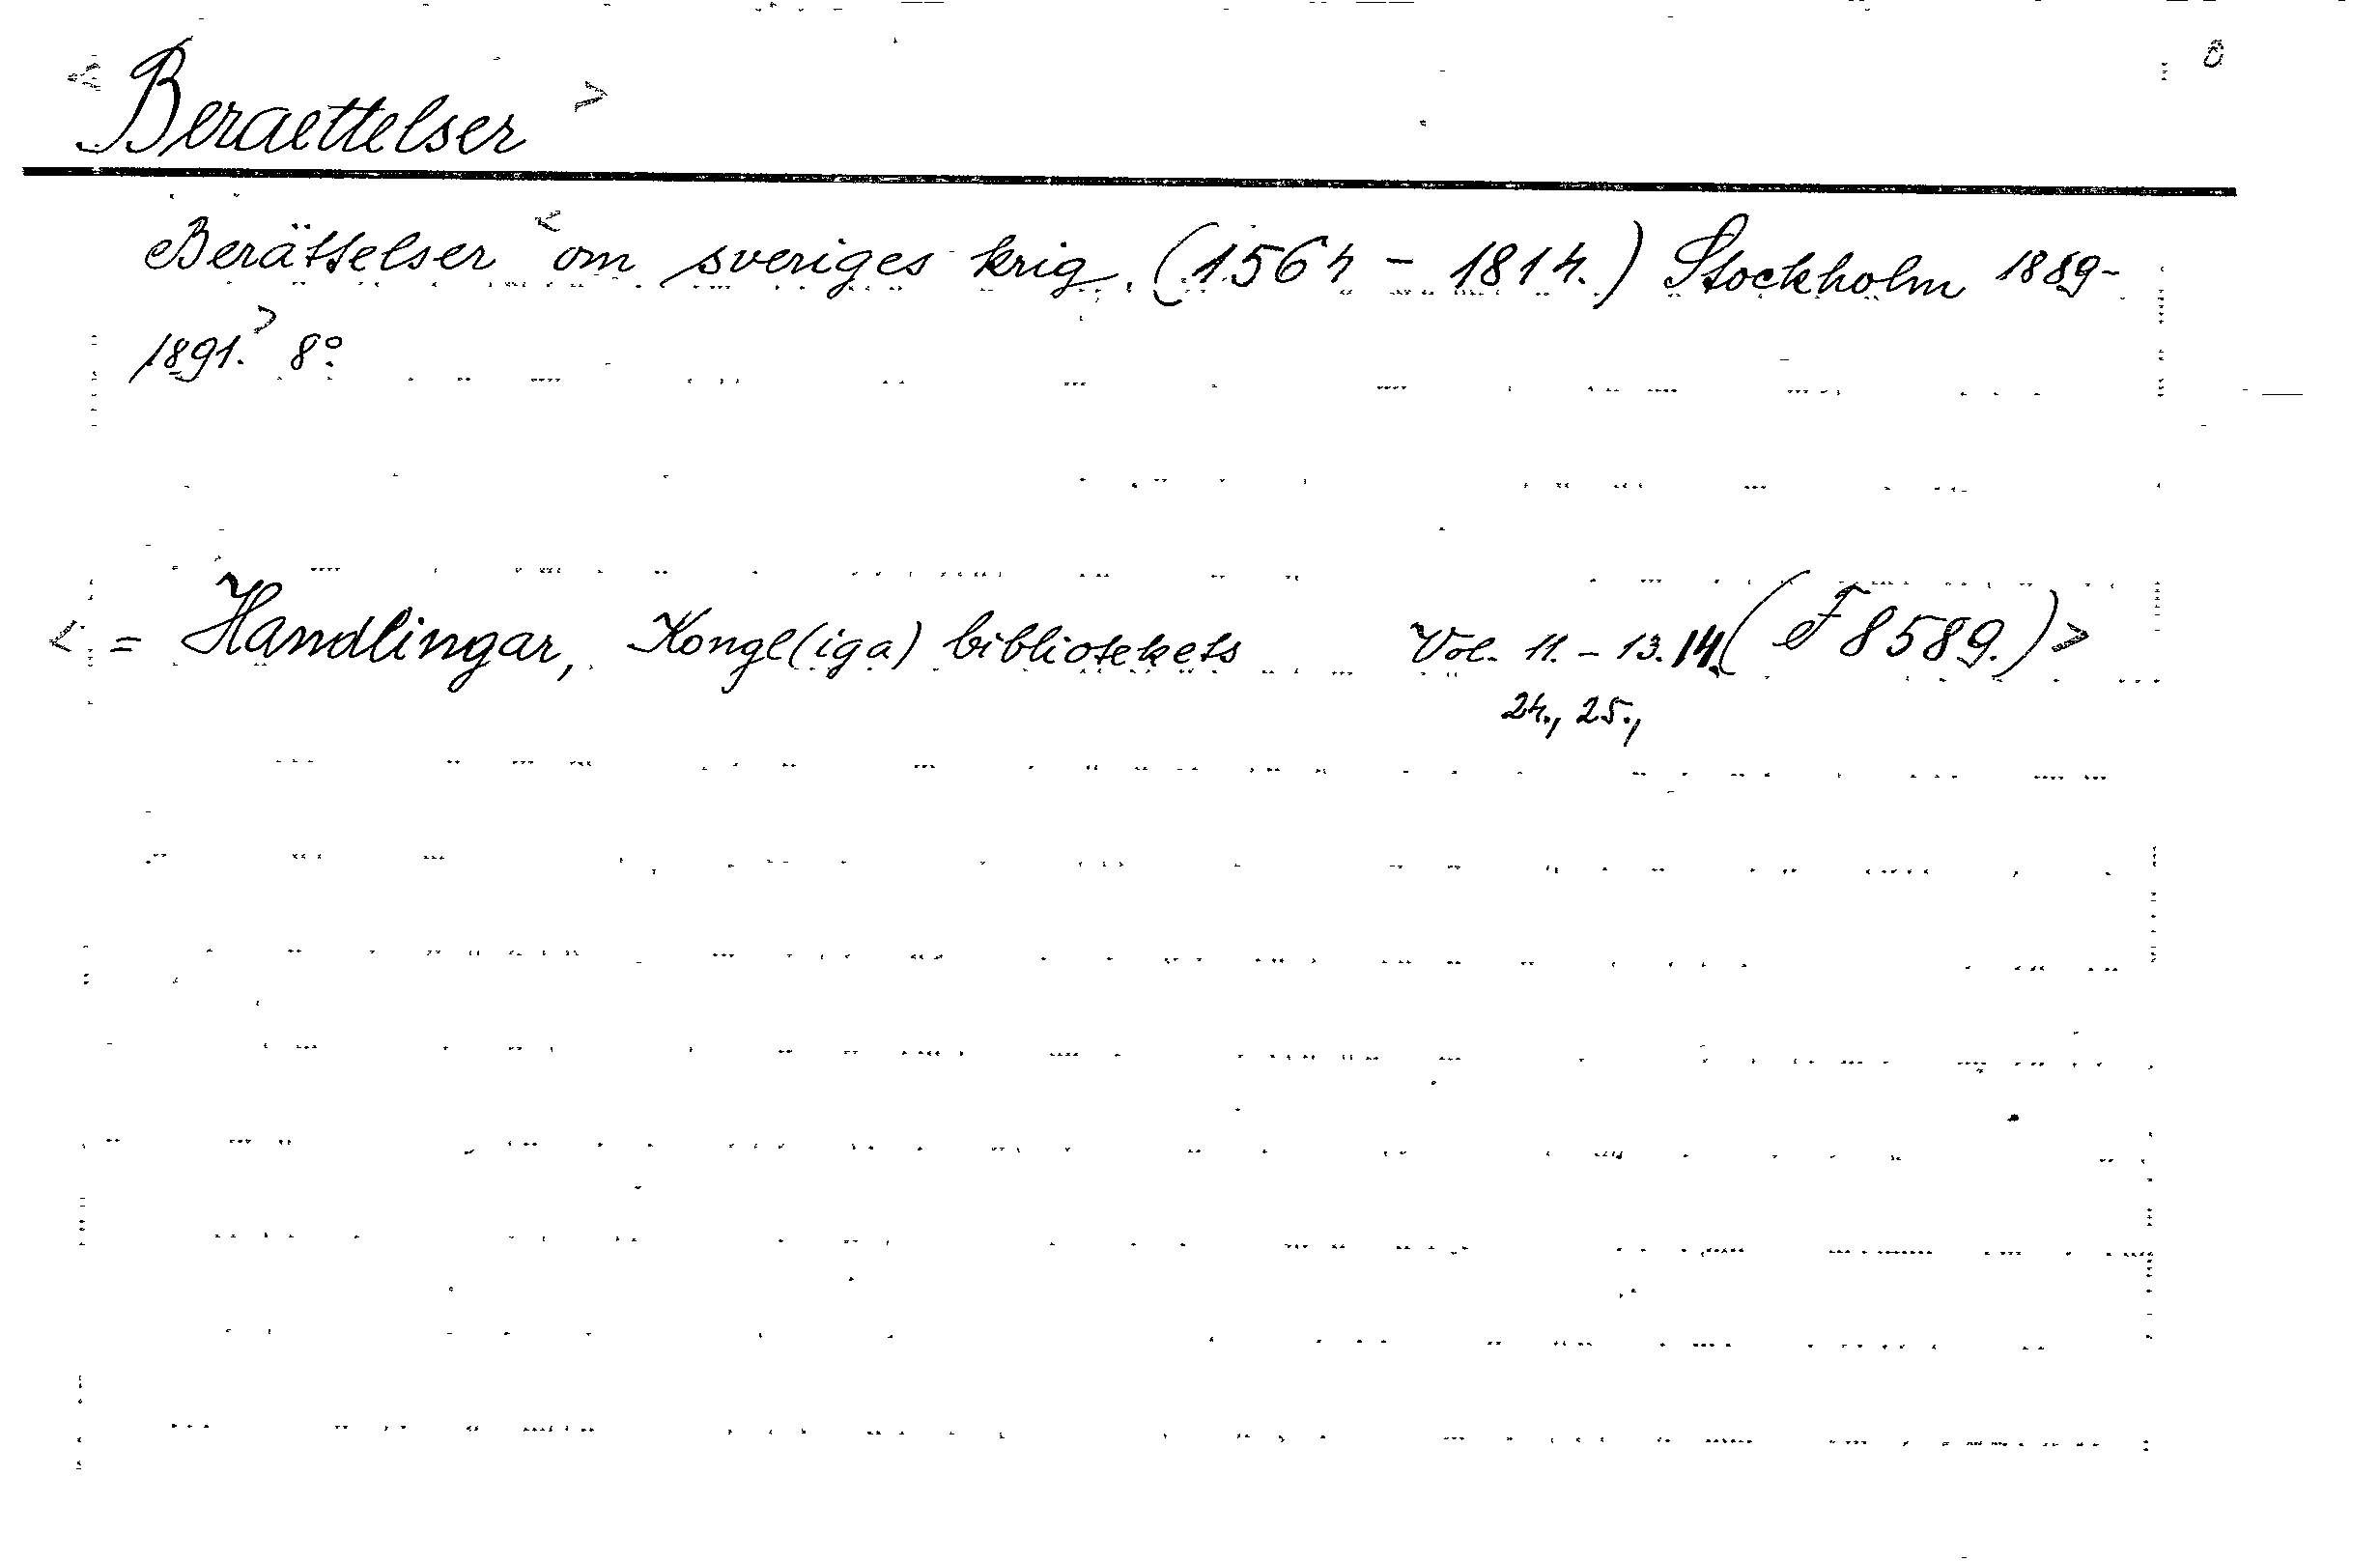 < Beraettelser >
Berättelser < om sveriges krig. (1564 - 1814.) Stockholm 1889-
1891. > 8°.
< = Handlingar, Kongl(iga) bibliotekets Vol. 11. - 13. 14. (F 8589.) >
24., 25.,